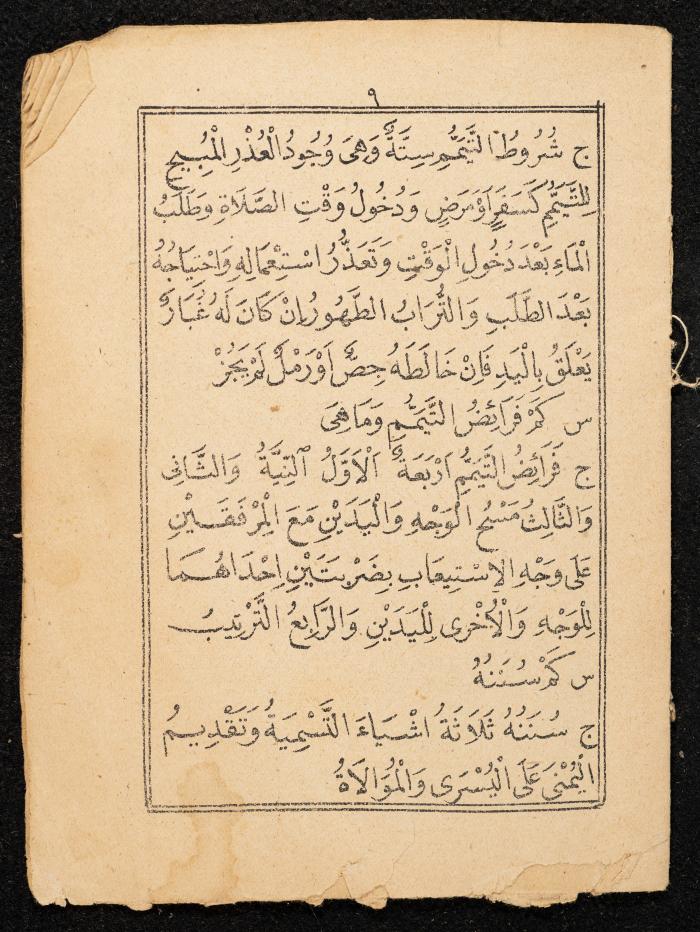 ٩
ج شُرُوطُ التَّيَمُّمِ سِتَّةٌ وَهِىَ وُجُودُ الْعُذْرِ الْمُبِيحِ
لِلتَّيَمُّمِ كَسَفَرٍ اَوْ مَرَضٍ وَدُخُولُ وَقْتِ الصَّلَاةِ وَطَلَبُ
الْمَاءِ بَعْدَ دُخُولِ الْوَقْتِ وَتَعَذُّرُ اسْتِعْمَالِهِ وَاحْتِيَاجُهُ
بَعْدَ الطَّلَبِ وَالتُّرَابُ الطَّهُورُ اِنْ كَانَ لَهُ غُبَارٌ
يَعْلَقُ بِالْيَدِ فَاِنْ خَالَطَهُ جِصٌّ اَوْ رَمْلٌ لَمْ يَجُزْ
س كَمْ فَرَائِضُ التَّيَمُّمِ وَمَا هِىَ
ج فَرَائِضُ التَّيَمُّمِ اَرْبَعَةٌ اَلْاَوَّلُ اَلنِّيَّةُ وَالثَّانِى
وَالثَّالِثُ مَسْحُ الْوَجْهِ وَالْيَدَيْنِ مَعَ الْمِرْفَقَيْنِ
عَلَى وَجْهِ الْاِسْتِيعَابِ بِضَرْبَتَيْنِ اِحْدَاهُمَا
لِلْوَجْهِ وَالْاُخْرٰى لِلْيَدَيْنِ وَالرَّابِعُ التَّرْتِيبُ
س كَمْ سُنَنُهُ
ج سُنَنُهُ ثَلَاثَةُ اَشْيَاءَ التَّسْمِيَةُ وَتَقْدِيمُ
الْيُمْنَى عَلَى الْيُسْرَى وَالْمُوَالَاةُ